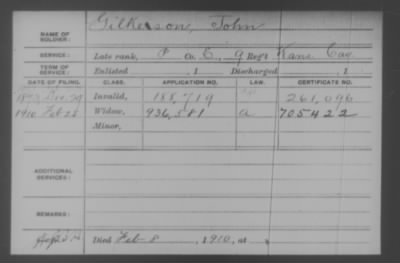 NAME OF SOLDIER: Gilkerson, John
SERVICE: Late rank, P Co. C, 9 Reg't Kans Cav.
TERM OF SERVICE: Enlisted , 1 Discharged , 1
DATE OF FILING. CLASS. APPLICATION NO. LAW. CERTIFICATE NO.
1873 Dec. 29 Invalid, 188,719 261,096
1910 Feb 28 Widow, 936,581 a 705422
Minor,
ADDITIONAL SERVICES:
REMARKS:
Died Feb 8, 1910, at